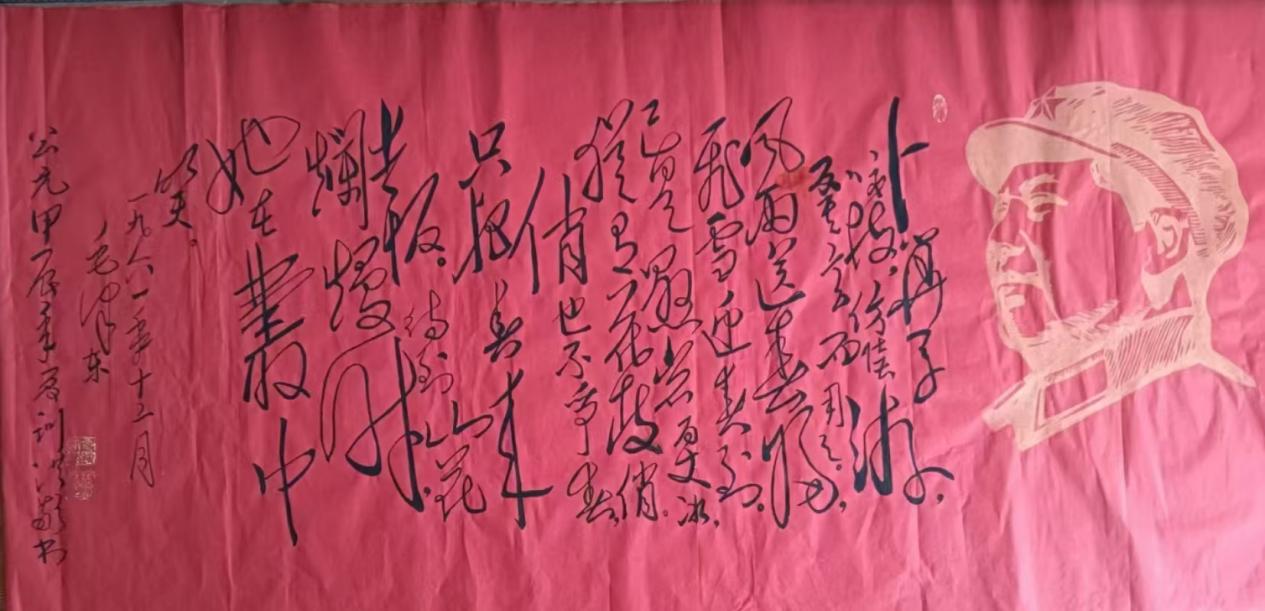 卜算子
咏梅,
反其意而用之,
风雨送春归,
飛雪迎春到。
已是懸崖百丈冰,
犹有花枝俏。
俏也不争春,
只把春来
报。待到山花
爛熳时,
她在叢中
笑。
一九六一年十二月
毛泽东
公元甲辰年夏敬书